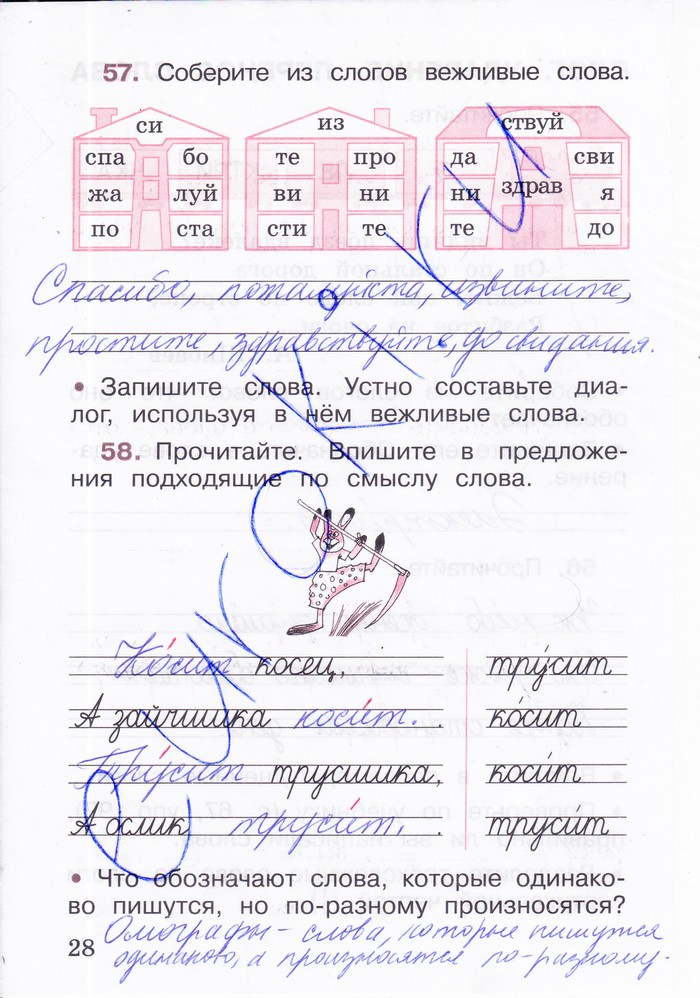 57. Соберите из слогов вежливые слова.
си
спа бо
жа луй
по ста
из
те про
ви ни
сти те
ствуй
да здрав сви
ни я
те до
Спасибо, пожалуйста, извините,
простите, здравствуйте, до свидания.
• Запишите слова. Устно составьте диа-
лог, используя в нём вежливые слова.
58. Прочитайте. Впишите в предложе-
ния подходящие по смыслу слова.
Ко́сит косец, тру́сит
А зайчишка коси́т. ко́сит
Тру́сит трусишка, коси́т
А ослик труси́т. труси́т
• Что обозначают слова, которые одинако-
во пишутся, но по-разному произносятся?
Омографы - слова, которые пишутся
одинаково, а произносятся по-разному.
28